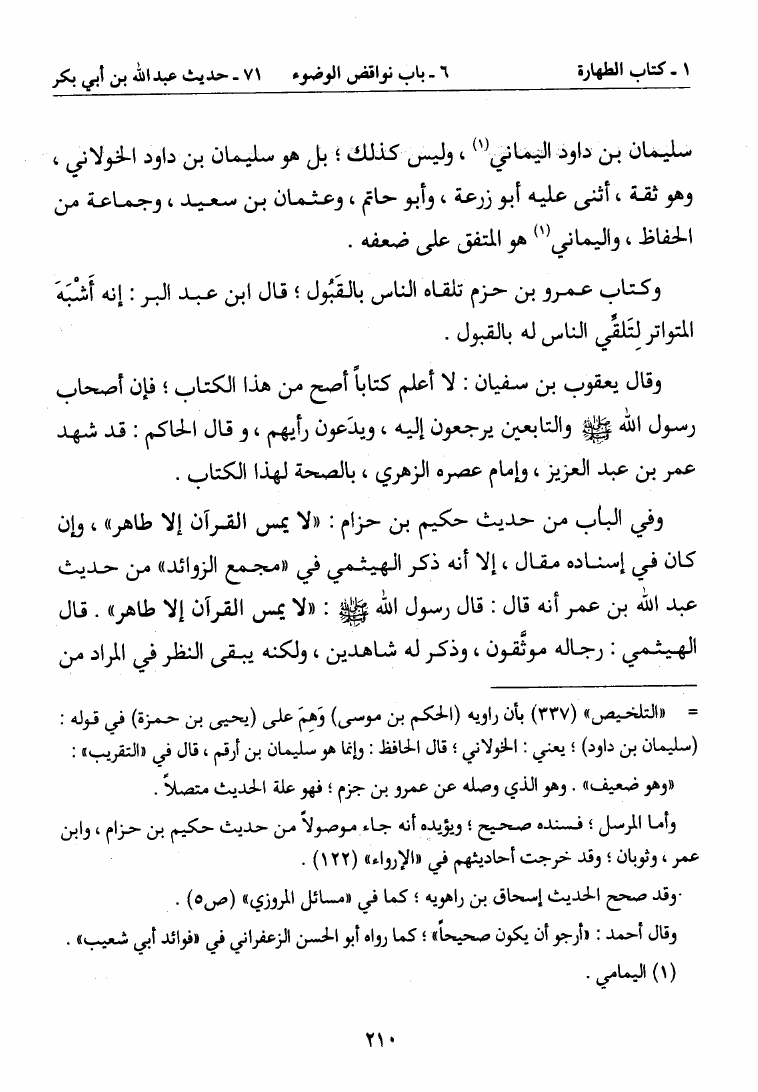 ١ ـ كتاب الطهارة ٦ ـ باب نواقض الوضوء ٧١ ـ حديث عبد الله بن أبي بكر
سليمان بن داود اليماني(١) ، وليس كذلك ؛ بل هو سليمان بن داود الخولاني ،
وهو ثقة ، أثنى عليه أبو زرعة ، وأبو حاتم ، وعثمان بن سعيد ، وجماعة من
الحفاظ ، واليماني(١) هو المتفق على ضعفه .
وكتاب عمرو بن حزم تلقاه الناس بالقَبُول ؛ قال ابن عبد البر : إنه أَشْبَهَ
المتواتر لِتَلَقِّي الناس له بالقبول .
وقال يعقوب بن سفيان : لا أعلم كتاباً أصح من هذا الكتاب ؛ فإن أصحاب
رسول الله ﷺ والتابعين يرجعون إليه ، ويدَعون رأيهم ، و قال الحاكم : قد شهد
عمر بن عبد العزيز ، وإمام عصره الزهري ، بالصحة لهذا الكتاب .
وفي الباب من حديث حكيم بن حزام : «لا يمس القرآن إلا طاهر» ، وإن
كان في إسناده مقال ، إلا أنه ذكر الهيثمي في «مجمع الزوائد» من حديث
عبد الله بن عمر أنه قال : قال رسول الله ﷺ : «لا يمس القرآن إلا طاهر» . قال
الهيثمي : رجاله موثَّقون ، وذكر له شاهدين ، ولكنه يبقى النظر في المراد من
= «التلخيص» (٣٣٧) بأن راويه (الحكم بن موسى) وَهِمَ على (يحيى بن حمزة) في قوله :
(سليمان بن داود) ؛ يعني : الخولاني ؛ قال الحافظ : وإنما هو سليمان بن أرقم ، قال في «التقريب» :
«وهو ضعيف» . وهو الذي وصله عن عمرو بن جزم ؛ فهو علة الحديث متصلاً .
وأما المرسل ؛ فسنده صحيح ؛ ويؤيده أنه جاء موصولاً من حديث حكيم بن حزام ، وابن
عمر ، وثوبان ؛ وقد خرجت أحاديثهم في «الإرواء» (١٢٢) .
وقد صحح الحديث إسحاق بن راهويه ؛ كما في «مسائل المروزي» (ص٥) .
وقال أحمد : «أرجو أن يكون صحيحاً» ؛ كما رواه أبو الحسن الزعفراني في «فوائد أبي شعيب» .
(١) اليمامي .
٢١٠